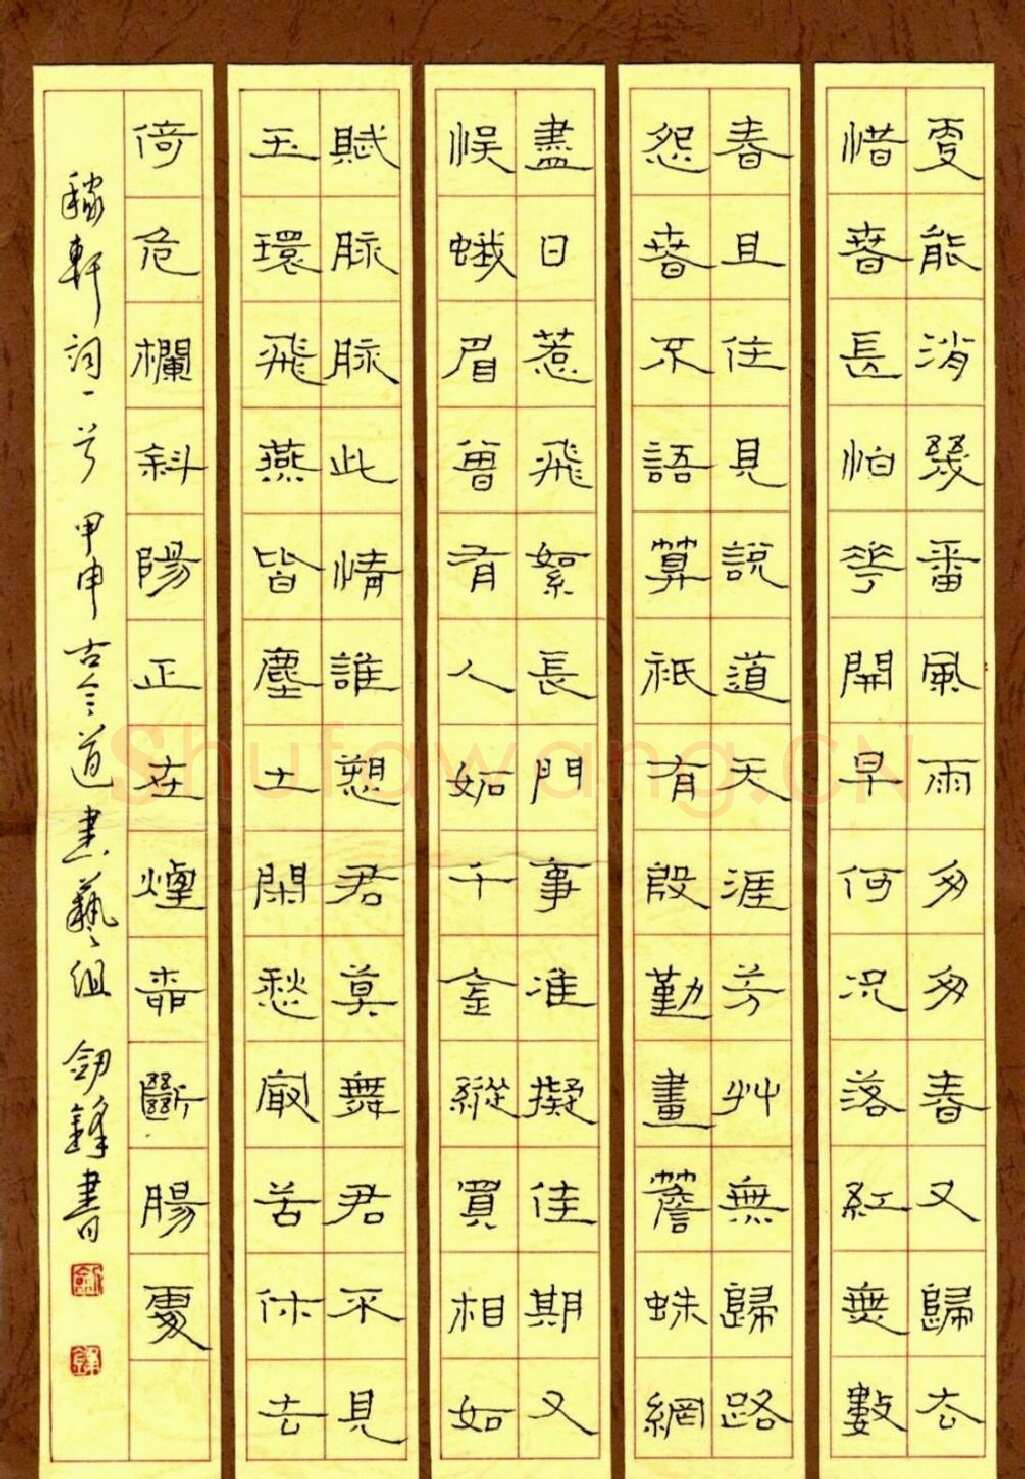 更能消幾番風雨匆匆春又歸去
惜春長怕花開早何況落紅無數
春且住見説道天涯芳艸無歸路
怨春不語算祇有殷勤畫簷蛛網
盡日惹飛絮長門事准擬佳期又
悞蛾眉曾有人妬千金縱買相如
賦脉脉此情誰愬君莫舞君不見
玉環飛燕皆塵土閑愁最苦休去
倚危欄斜陽正在煙柳斷腸處
稼軒詞一首 甲申古今道書藝組 劍鋒書
劍
鋒
Shufawang.CN